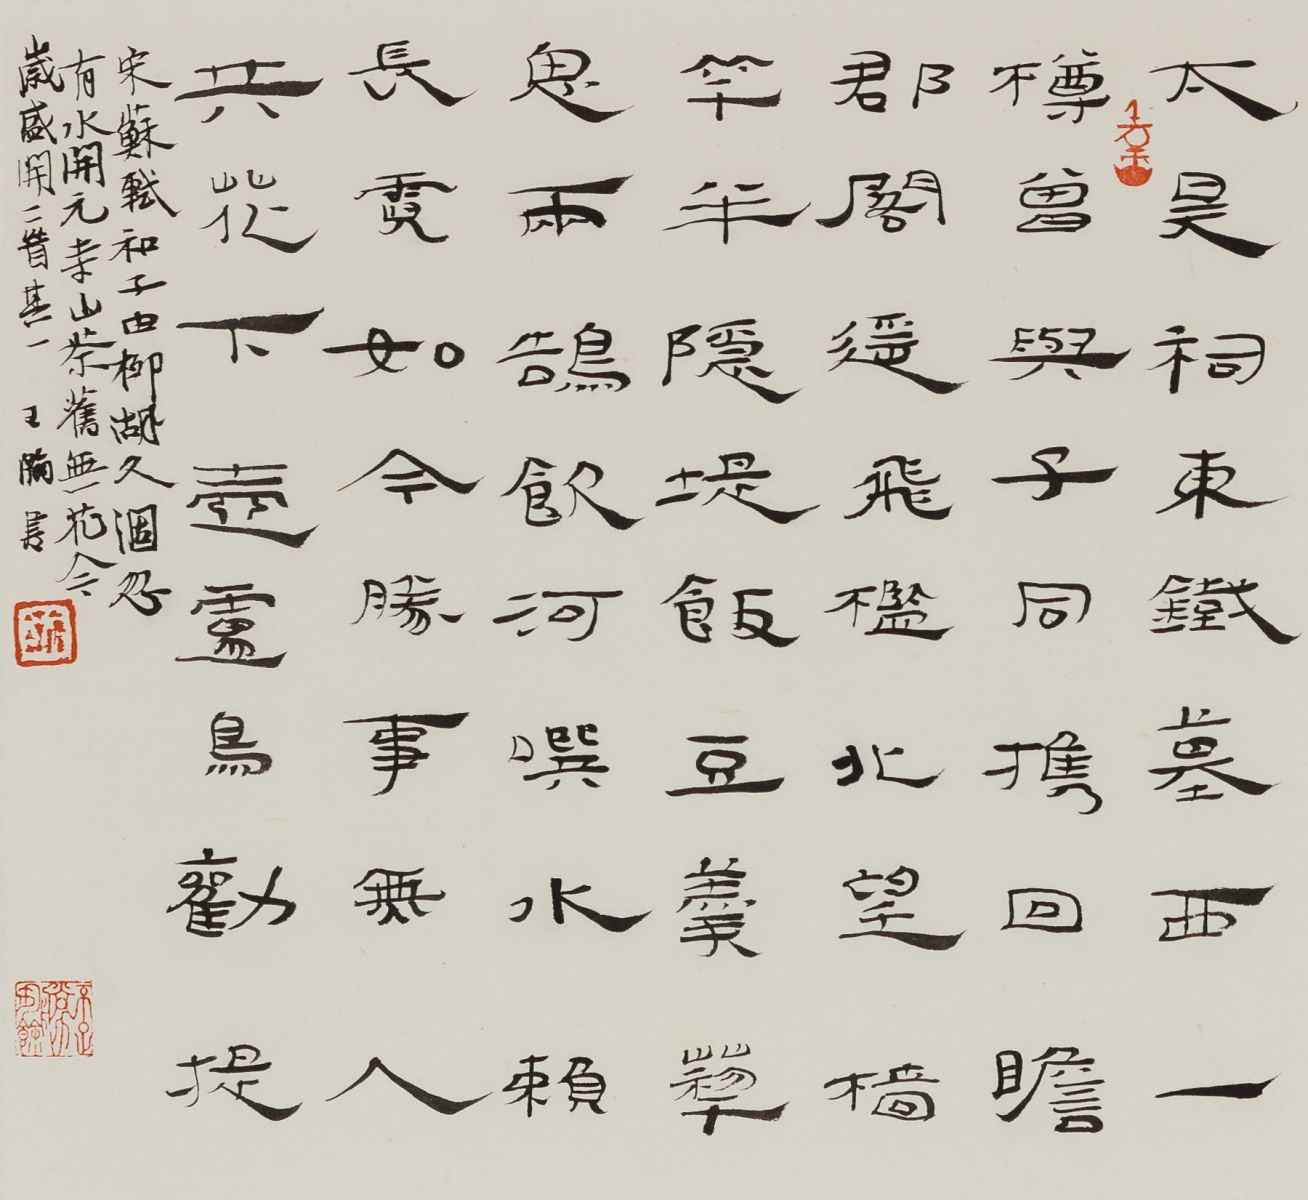 太昊祠東鐵墓西一
樽曾與子同携回瞻
郡閣遥飛檻北望檣
竿半隱堤飯豆羹藜
思兩鵠飲河噀水賴
長霓如今勝事無人
共花下壺盧鳥勸提
宋蘇軾和子由柳湖久涸忽
有水開元寺山茶舊無花今
歲盛開二首其一 王 書